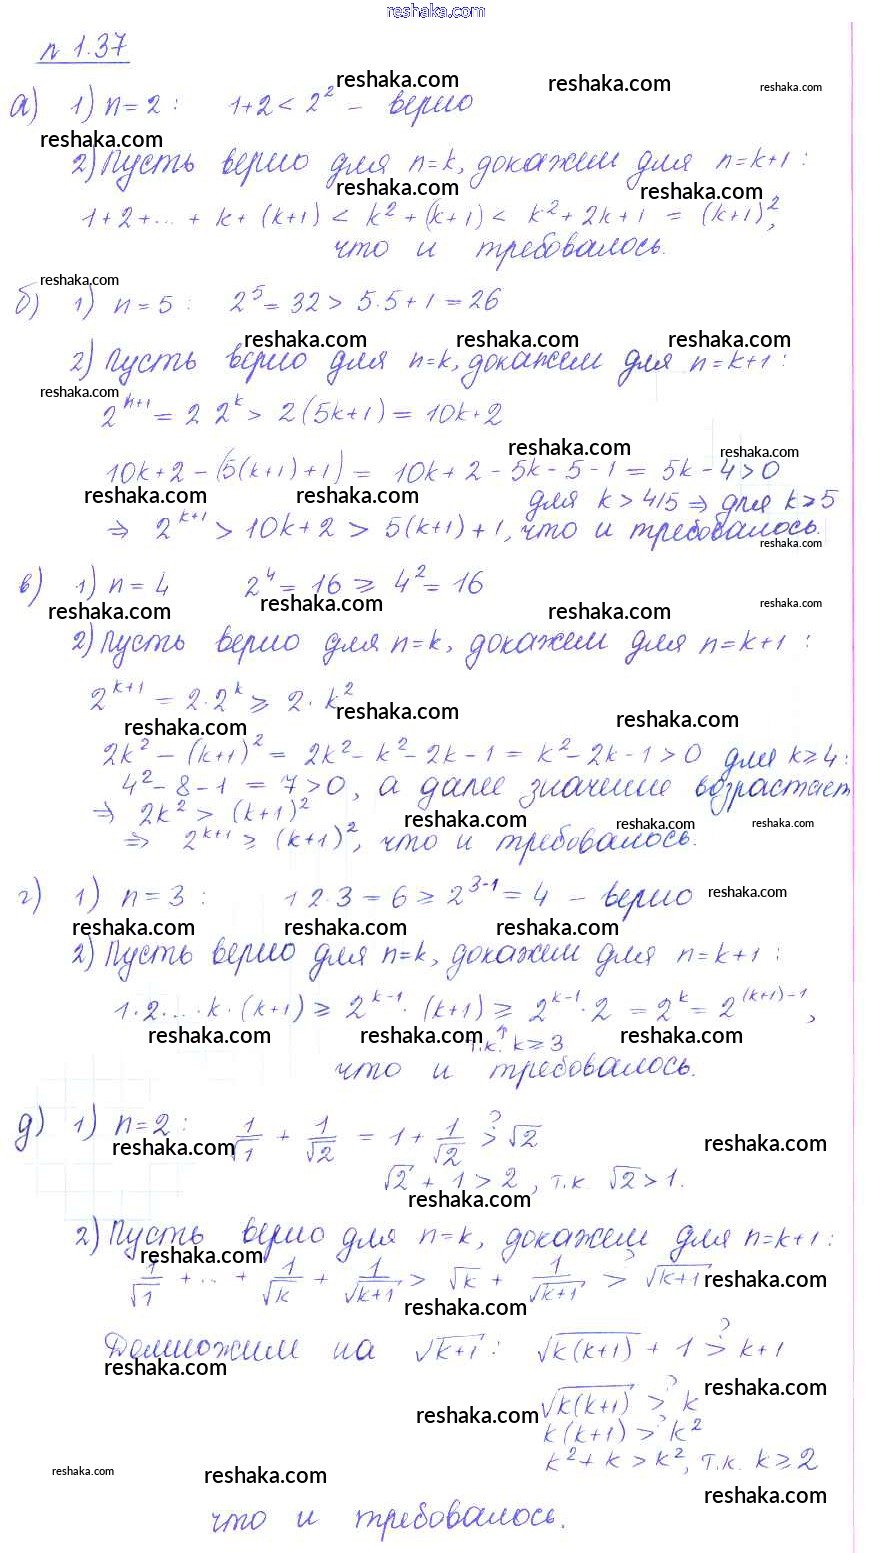 reshaka.com
n 1.37
а) 1) n = 2 : 1+2 < 2² – верно
2) Пусть верно для n=k, докажем для n=k+1 :
1+2+...+ k+ (k+1) < k² + (k+1) < k² + 2k+1 = (k+1)²,
что и требовалось.
б) 1) n = 5 : 2⁵ = 32 > 5·5+1 = 26
2) Пусть верно для n=k, докажем для n=k+1 :
2ⁿ⁺¹ = 2 2ᵏ > 2(5k+1) = 10k+2
10k+2 – (5(k+1)+1) = 10k+2 – 5k – 5 – 1 = 5k – 4 > 0
для k > 4/5 ⇒ для k ≥ 5
⇒ 2ᵏ⁺¹ > 10k+2 > 5(k+1)+1, что и требовалось.
в) 1) n = 4 2⁴ = 16 ≥ 4² = 16
2) Пусть верно для n=k, докажем для n=k+1 :
2ᵏ⁺¹ = 2·2ᵏ ≥ 2·k²
2k² – (k+1)² = 2k² – k² – 2k – 1 = k² – 2k – 1 > 0 для k ≥ 4:
4² – 8 – 1 = 7 > 0, а далее значение возрастает
⇒ 2k² > (k+1)²
⇒ 2ᵏ⁺¹ ≥ (k+1)², что и требовалось.
г) 1) n = 3 : 1 2·3 = 6 ≥ 2³⁻¹ = 4 – верно
2) Пусть верно для n=k, докажем для n=k+1 :
1·2·...·k·(k+1) ≥ 2ᵏ⁻¹·(k+1) ≥ 2ᵏ⁻¹·2 = 2ᵏ = 2⁽ᵏ⁺¹⁾⁻¹,
↑ т.к. k ≥ 3
что и требовалось.
д) 1) n=2 : 1/√1 + 1/√2 = 1 + 1/√2 >? √2
√2 + 1 > 2, т.к √2 > 1.
2) Пусть верно для n=k, докажем для n=k+1 :
1/√1 + ... + 1/√k + 1/√(k+1) > √k + 1/√(k+1) >? √(k+1)
Домножим на √(k+1) : √(k(k+1)) + 1 >? k+1
√(k(k+1)) >? k
k(k+1) >? k²
k² + k > k², т.к. k ≥ 2
что и требовалось.